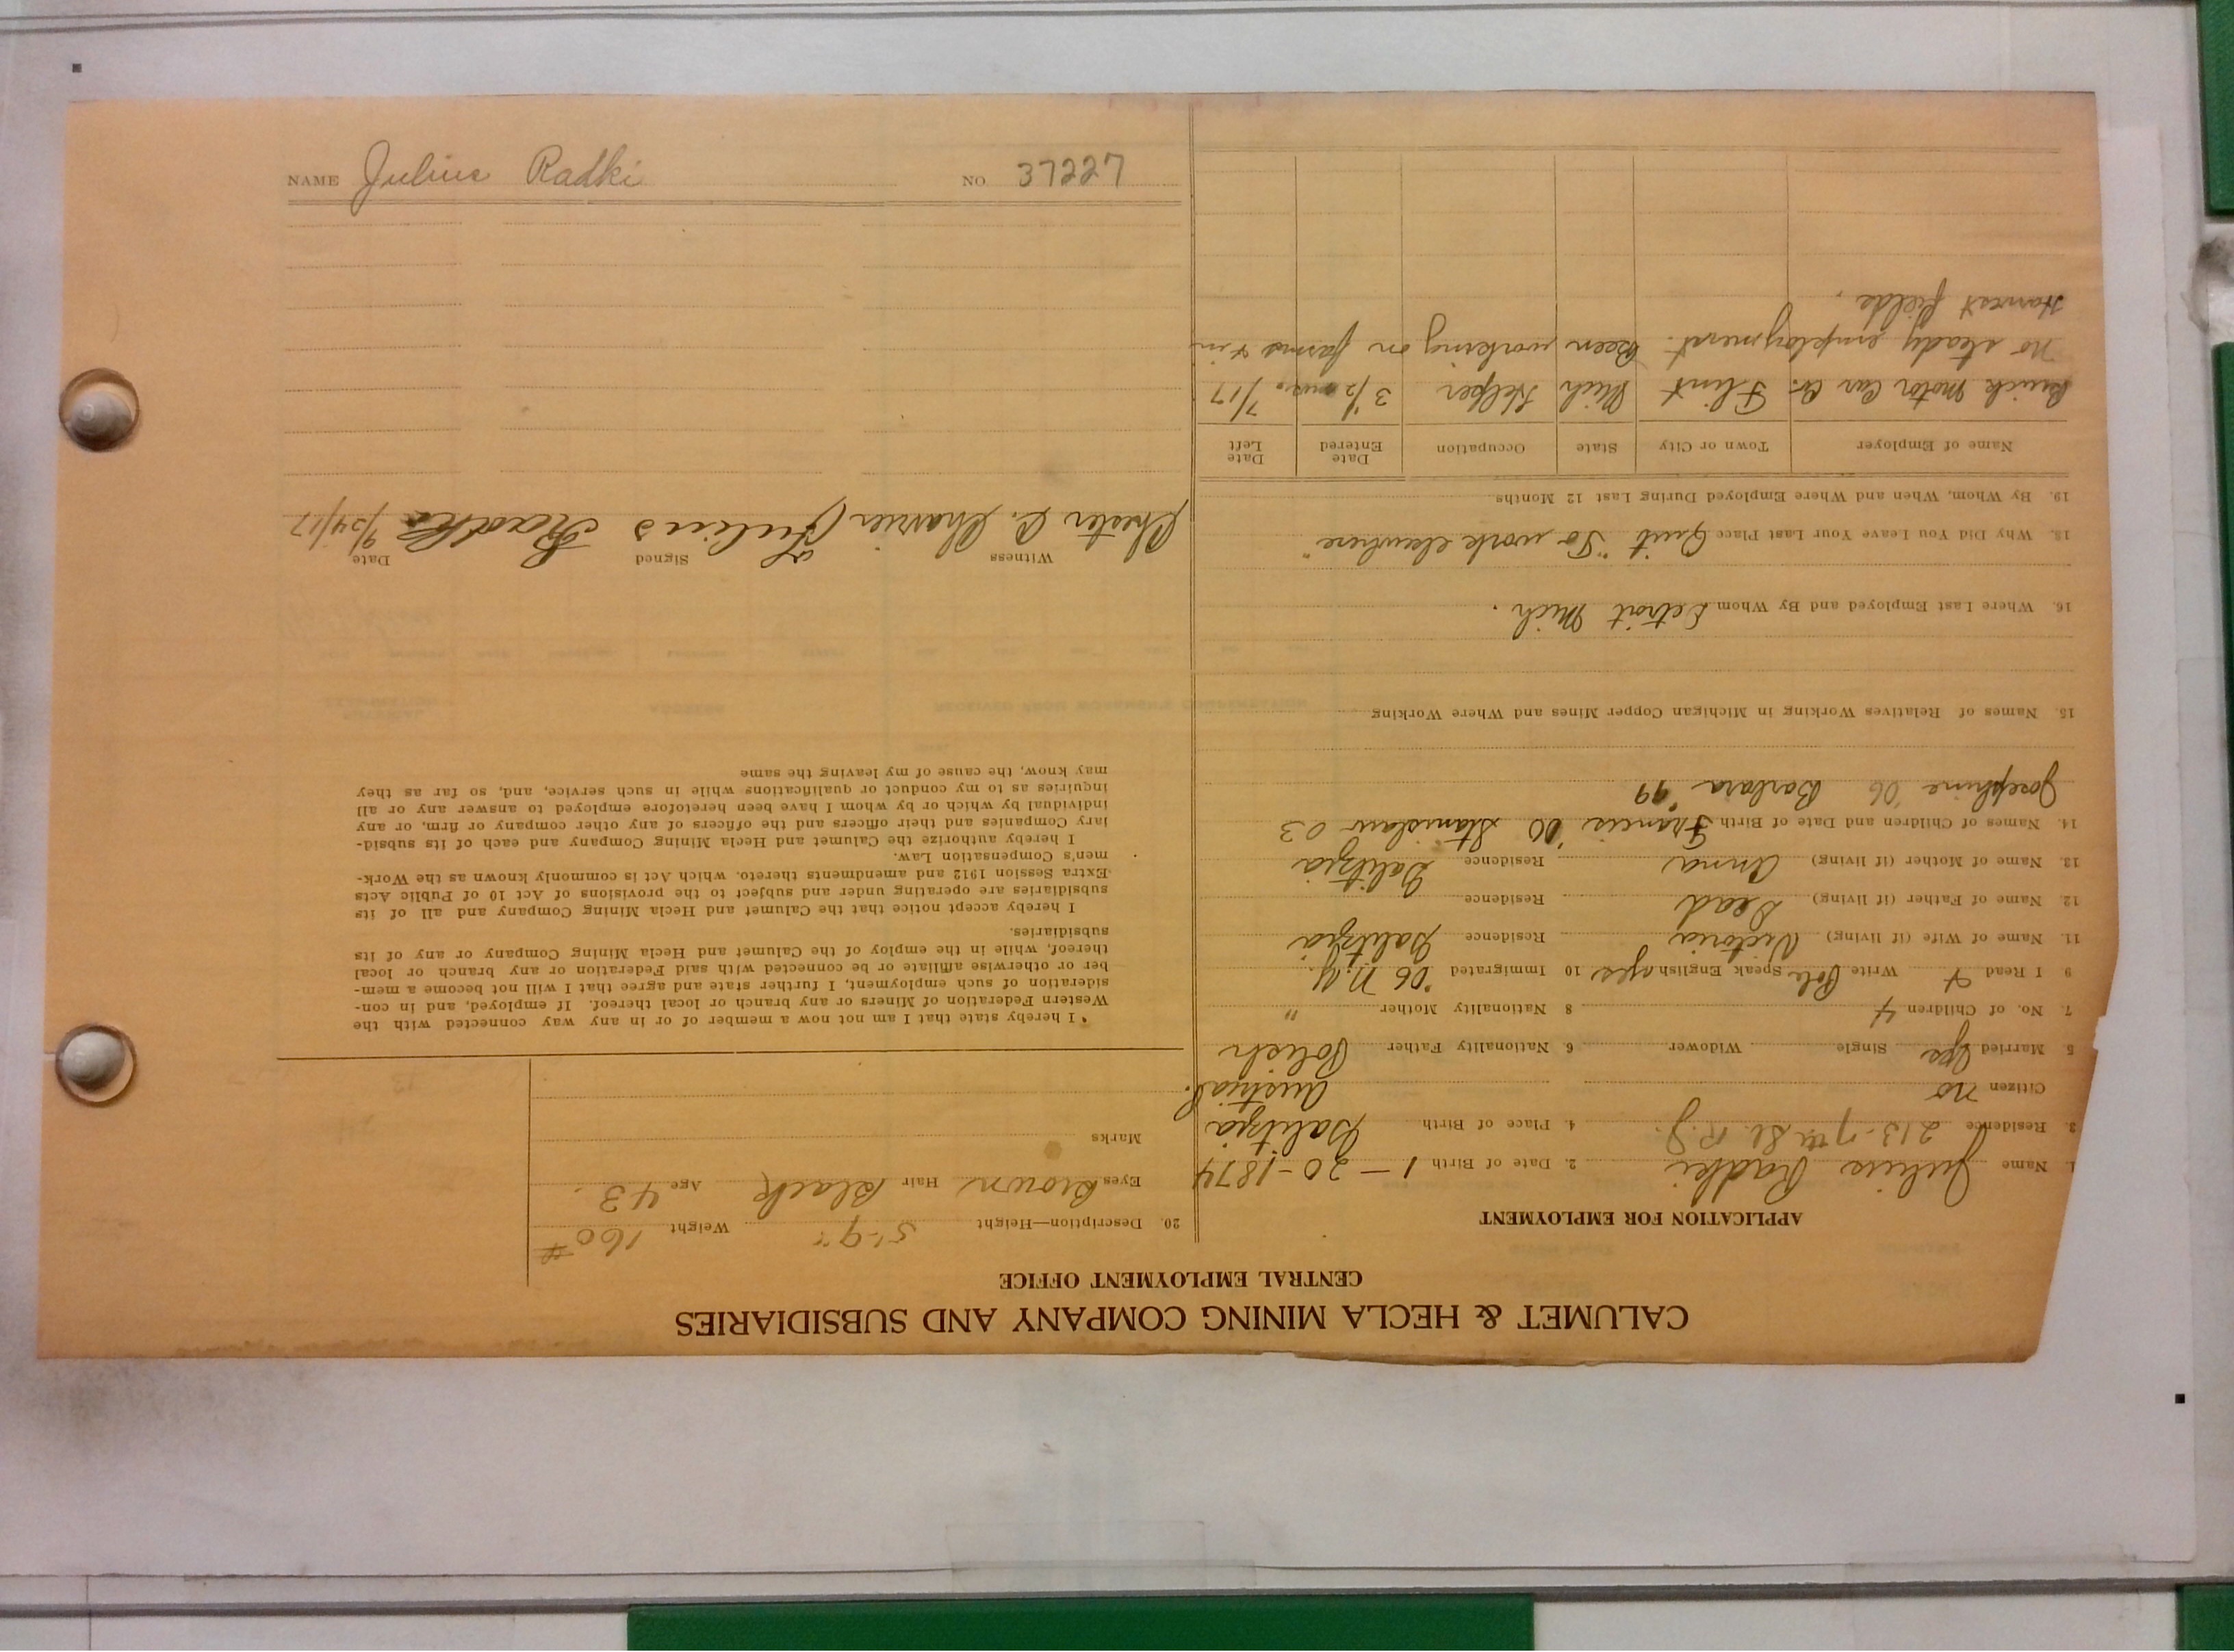 CALUMET & HECLA MINING COMPANY AND SUBSIDIARIES
CENTRAL EMPLOYMENT OFFICE
APPLICATION FOR EMPLOYMENT
1. Name Julius Radki 2. Date of Birth 1-20-1874
3. Residence 213-7th St. R.J. 4. Place of Birth Galitzia
Citizen no Austria
5 Married yes Single Widower 6. Nationality Father Polish
7. No. of Children 4 8 Nationality Mother "
9 I Read Write Pole Speak English yes 10 Immigrated '06 N.Y.
11. Name of Wife (if living) Victoria Residence Galitzia
12. Name of Father (if living) Dead Residence
13. Name of Mother (if living) Anna Residence Galitzia
14. Names of Children and Date of Birth Francis '00 Stanislaw 03
Josephine '06 Barbara '99
15. Names of Relatives Working in Michigan Copper Mines and Where Working
16. Where Last Employed and By Whom Detroit Mich.
18. Why Did You Leave Your Last Place Quit "To work elsewhere"
19. By Whom, When and Where Employed During Last 12 Months
Name of Employer Town or City State Occupation Date Entered Date Left
Buick Motor Car Co. Flint Mich Helper 3 1/2 mos. 7/17
No steady employment. Been working on farms & in
Harvest fields.
20. Description—Height 5'-9" Weight 160#
Eyes Brown Hair Black Age 43.
Marks
I hereby state that I am not now a member of or in any way connected with the
Western Federation of Miners or any branch or local thereof. If employed, and in con-
sideration of such employment, I further state and agree that I will not become a mem-
ber or otherwise affiliate or be connected with said Federation or any branch or local
thereof, while in the employ of the Calumet and Hecla Mining Company or any of its
subsidiaries.
I hereby accept notice that the Calumet and Hecla Mining Company and all of its
subsidiaries are operating under and subject to the provisions of Act 10 of Public Acts
Extra Session 1912 and amendments thereto. which Act is commonly known as the Work-
men's Compensation Law.
I hereby authorize the Calumet and Hecla Mining Company and each of its subsid-
iary Companies and their officers and the officers of any other company or firm, or any
individual by which or by whom I have been heretofore employed to answer any or all
inquiries as to my conduct or qualifications while in such service, and, so far as they
may know, the cause of my leaving the same
Witness Signed Date
Chester C. Julius Radki 9/24/17
NAME Julius Radki NO 37227